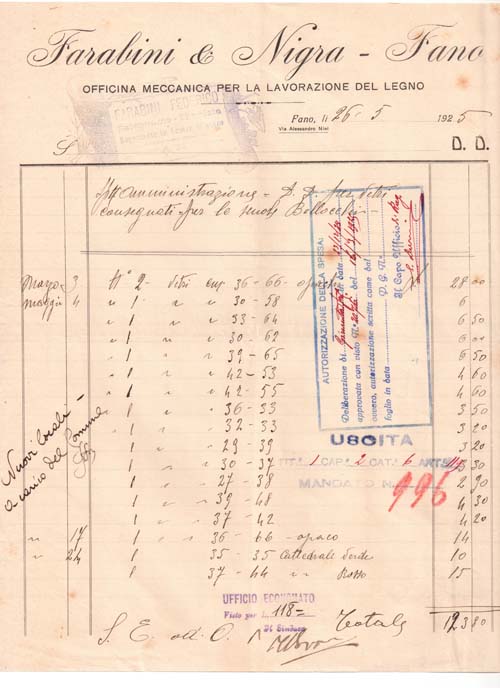 Farabini & Nigra - Fano
OFFICINA MECCANICA PER LA LAVORAZIONE DEL LEGNO
FARABINI FEDERICO
Fano, li 26 - 5 1925
Via Alessandro Nini
S D. D.
Amministrazione - D. D. per vetri
consegnati per le scuole Bellocchi
AUTORIZZAZIONE DELLA SPESA
Deliberazione di in data
approvata con visto N. del
ovvero, autorizzazione scritta come dal
foglio in data P. G. N.
Il Capo Ufficio
Marzo 3 N° 2 - vetri cm 36 - 66 - opachi 28 00
Maggio 4 " 1 " " 30 - 58 6
1 " " 53 - 64 6 50
1 " " 30 - 62
1 " " 39 - 65 5 50
1 " " 42 - 53 4 60
1 " 42 - 55 4 60
1 " " 36 - 53 3 50
1 " " 32 - 33 3 20
1 " " 29 - 39 3 20
1 " " 30 - 37 3 30
1 " 27 - 38 2 90
1 " 39 - 48 4 30
1 " 37 - 42 4 20
" 17 1 " 36 - 66 - opaco 14
" 24 1 35 - 35 Cattedrale Verde 10
1 37 - 44 " " Rosso 15
Nuovi locali
a carico del Comune
USCITA
TIT. 1 CAP. 2 CAT. 6 ART.
MANDATO N. 996
UFFICIO ECONOMATO
Visto per L. 118=
Il Sindaco
S. E. ed. O. Totale 123 80